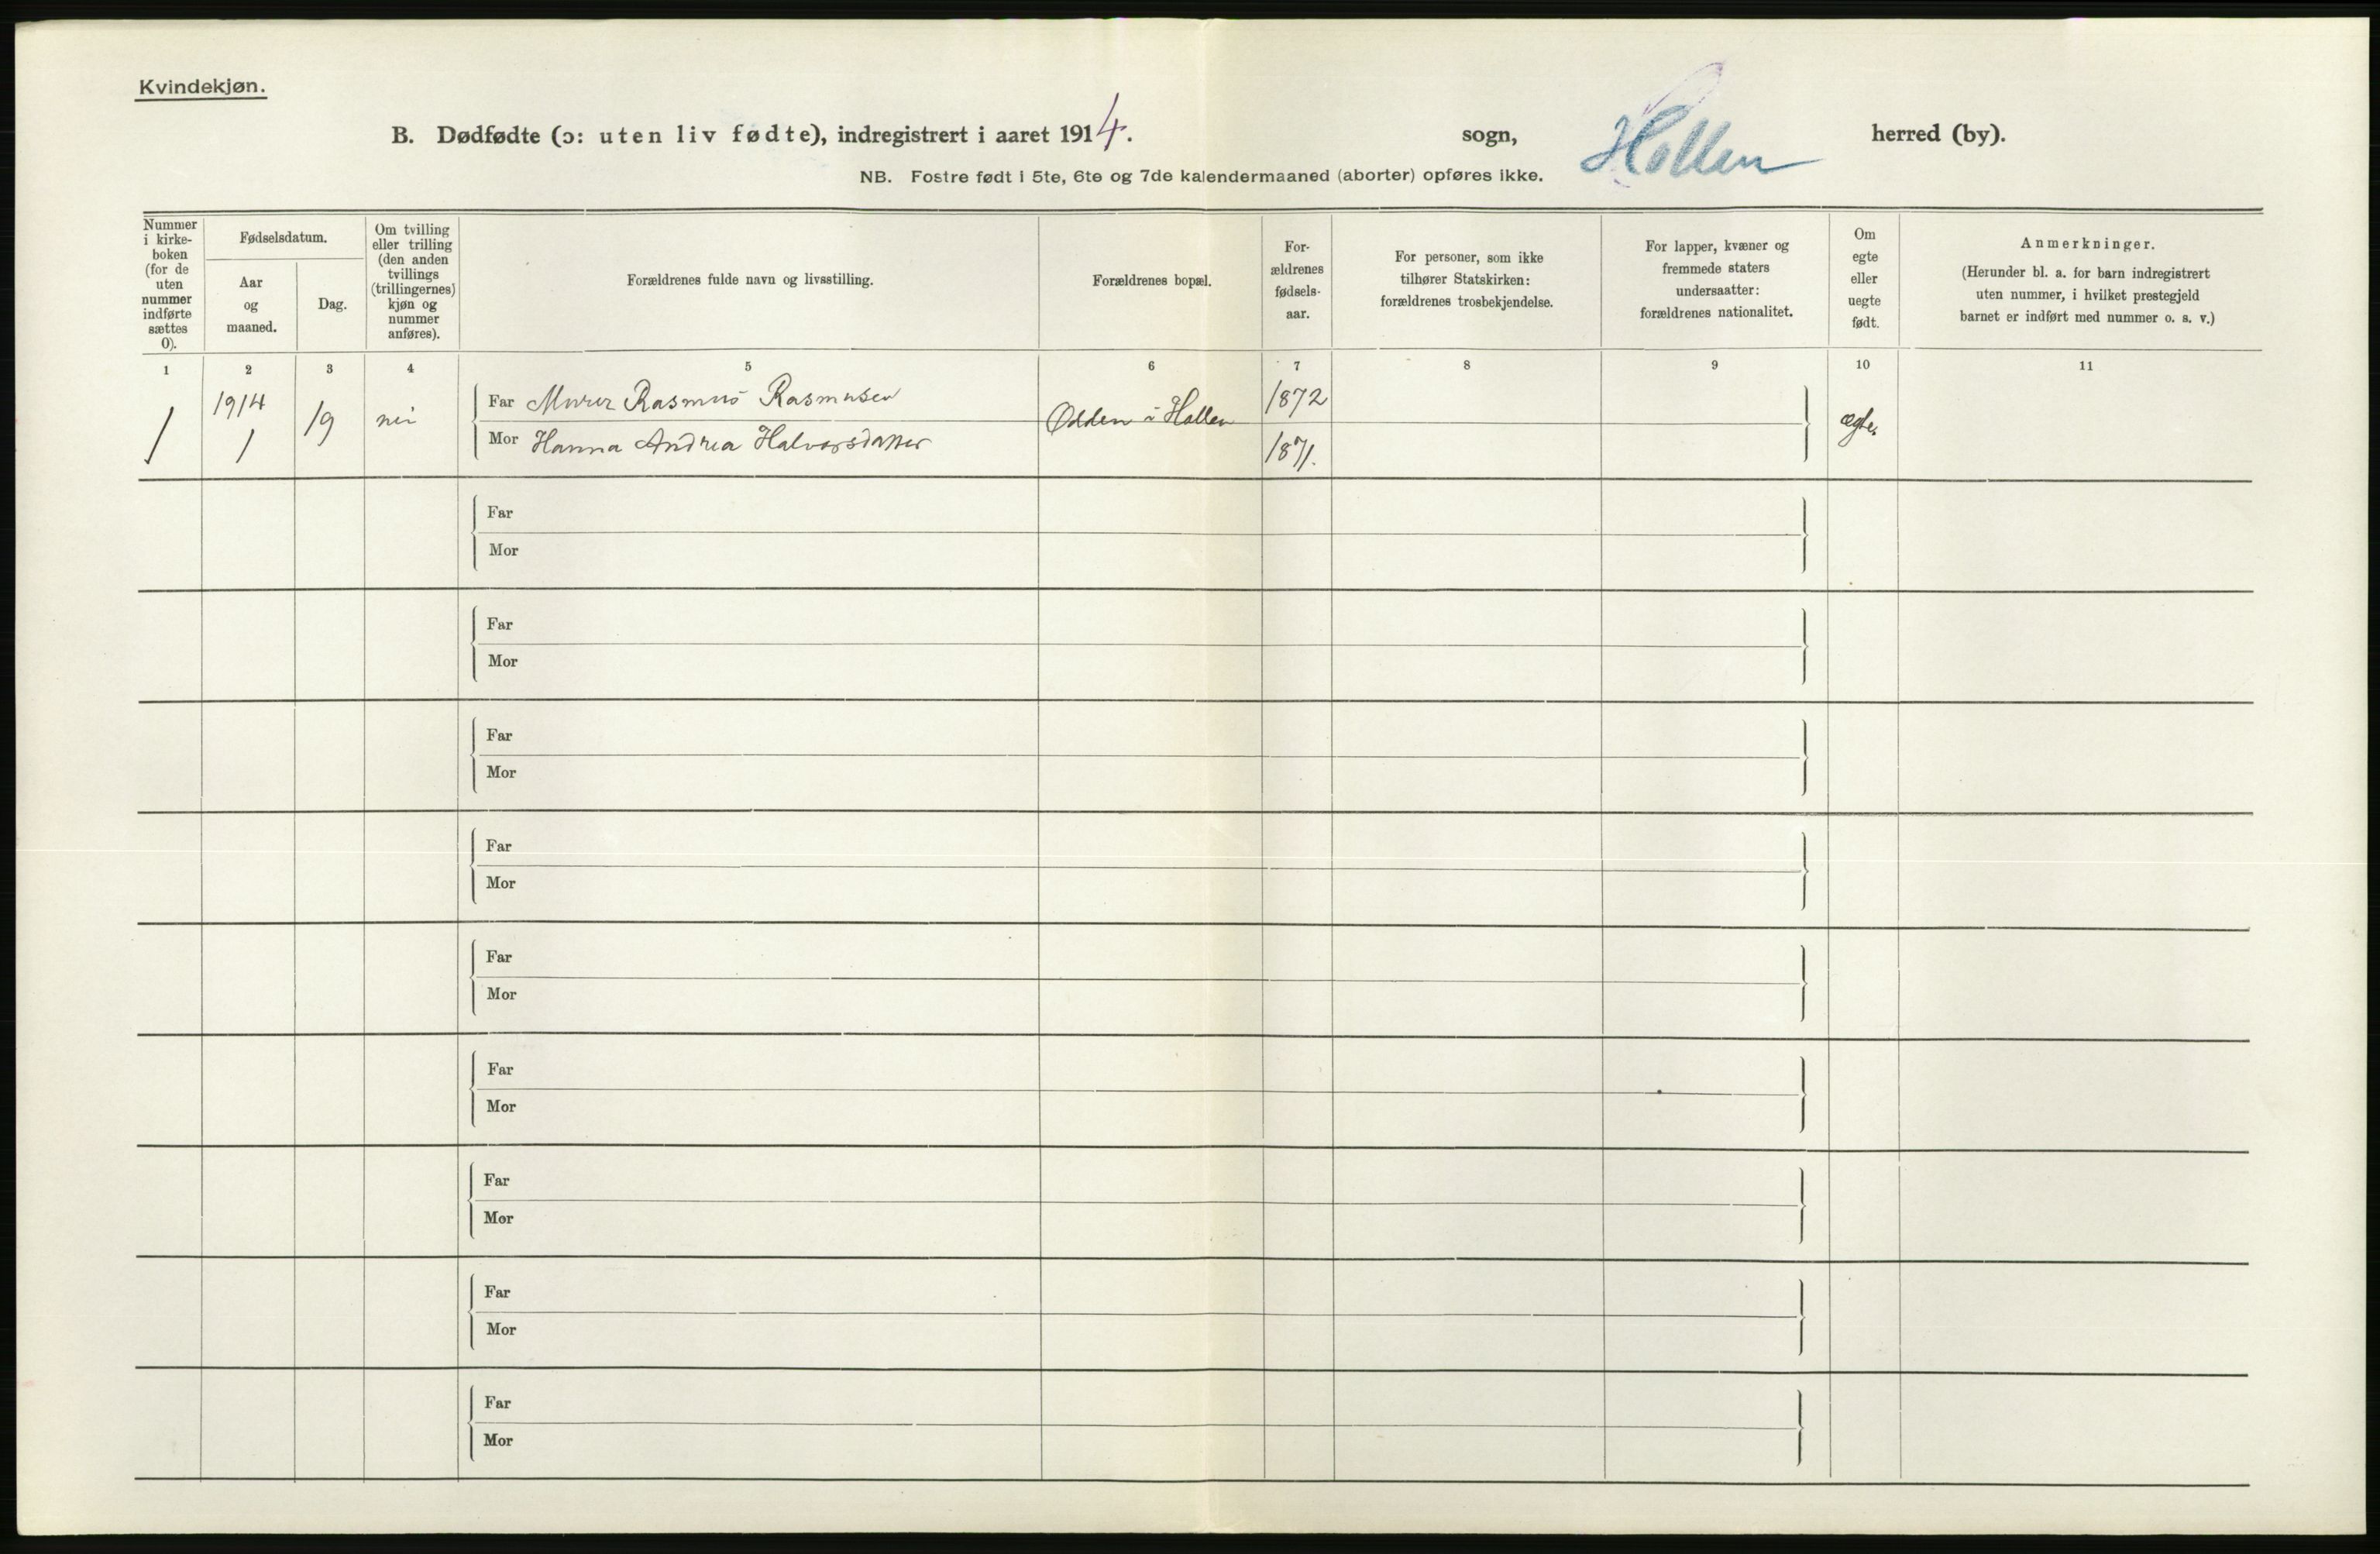 Kvindekjøn.
B. Dødfødte (ɔ: uten liv fødte), indregistrert i aaret 1914. sogn, Hollen herred (by).
NB. Fostre født i 5te, 6te og 7de kalendermaaned (aborter) opføres ikke.
Nummer
i kirke-
boken
(for de
uten
nummer
indførte
sættes
0).
Fødselsdatum.
Aar
og
maaned.
Dag.
Om tvilling
eller trilling
(den anden
tvillings
(trillingernes)
kjøn og
nummer
anføres).
Forældrenes fulde navn og livsstilling.
Forældrenes bopæl.
For-
ældrenes
fødsels-
aar.
For personer, som ikke
tilhører Statskirken:
forældrenes trosbekjendelse.
For lapper, kvæner og
fremmede staters
undersaatter:
forældrenes nationalitet.
Om
egte
eller
uegte
født.
Anmerkninger.
(Herunder bl. a. for barn indregistrert
uten nummer, i hvilket prestegjeld
barnet er indført med nummer o. s. v.)
1 2 3 4 5 6 7 8 9 10 11
1 1914 1 19 nei
Far Murer Rasmus Rasmusen Odden i Hollen 1872 ægte.
Mor Hanna Andrea Halvorsdatter 1871.
Far
Mor
Far
Mor
Far
Mor
Far
Mor
Far
Mor
Far
Mor
Far
Mor
Far
Mor
Far
Mor